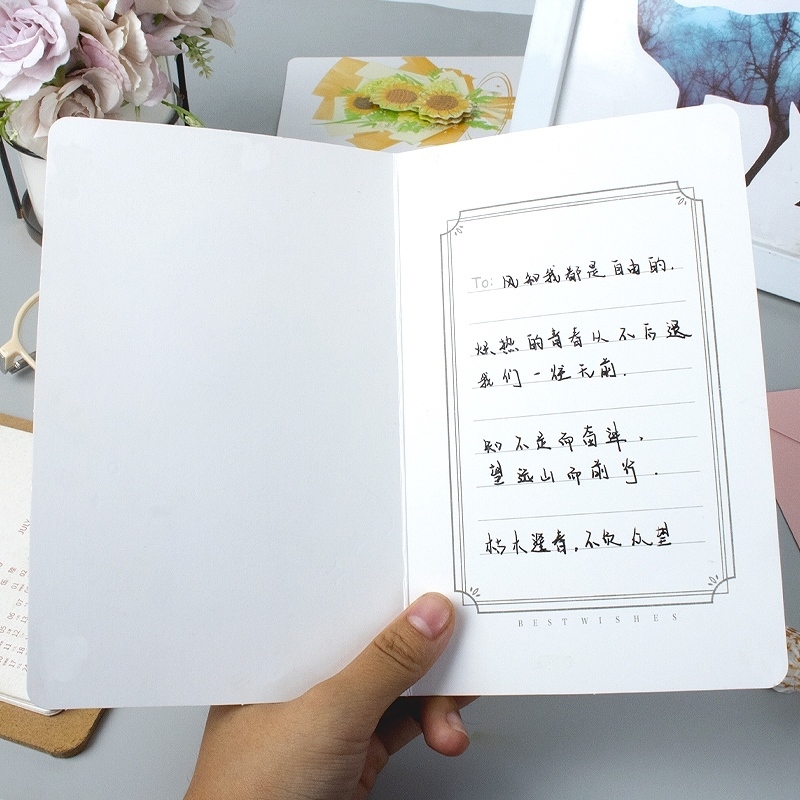 To: 风和我都是自由的.
炽热的青春从不后退
我们一往无前.
知不足而奋进,
望远山而前行.
枯木逢春,不负众望
BEST WISHES
JULY